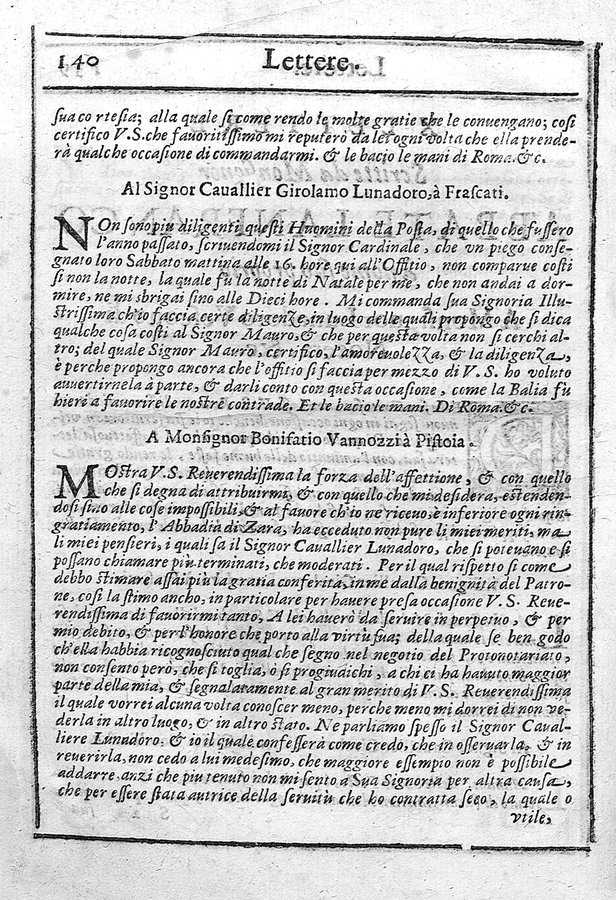 140 Lettere.
sua co rtesia; alla quale si come rendo le molte gratie che le conuengano; così
certifico V.S.che fauoritissimo mi reputerò da lei ogni volta che ella prende-
rà qualche occasione di commandarmi. & le bacio le mani di Roma.&c.
Al Signor Cauallier Girolamo Lunadoro,à Frascati.
NOn sono piu diligenti questi Huomini della Posta, di quello che fussero
l'anno passato, scriuendomi il Signor Cardinale, che vn piego conse-
gnato loro Sabbato mattina alle 16. hore qui all'Offitio, non comparue costì
si non la notte, la quale fu la notte di Natale per me, che non andai a dor-
mire, ne mi sbrigai sino alle Dieci hore . Mi commanda sua Signoria Illu-
strissima ch'io faccia certe diligenze,in luogo delle quali propongo che si dica
qualche cosa costi al Signor Mauro,& che per questa volta non si cerchi al-
tro; del quale Signor Mauro, certifico, l'amoreuolezza, & la diligenza,
è perche propongo ancora che l'offitio si faccia per mezzo di V. S. ho voluto
auuertirnela à parte, & darli conto con questa occasione , come la Balia fu
hieri a fauorire le nostre contrade. Et le bacio le mani. Di Roma.&c.
A Monsignor Bonifatio Vannozzi à Pistoia .
MOstra V. S. Reuerendissima la forza dell'affettione, & con quello
che si degna di attribuirmi, & con quello che mi desidera, estenden-
dosi sino alle cose impossibili,& al fauore ch'io ne riceuo, è inferiore ogni rin-
gratiamento, l' Abbadia di Zara, ha ecceduto non pure li miei meriti, ma
li miei pensieri, i quali sa il Signor Cauallier Lunadoro, che si poteuano e si
possano chiamare piu terminati, che moderati . Per il qual rispetto si come
debbo stimare assai più la gratia conferita in me dalla benignità del Patro-
ne, così la stimo ancho, in particolare per hauere presa occasione V. S. Reue-
rendissima di fauorirmi tanto, A lei hauerò da seruire in perpetuo , & per
mio debito, & per l'honore che porto alla virtù sua; della quale se ben godo
ch'ella habbia ricognosciuto qual che segno nel negotio del Protonotariato,
non consento però, che si toglia, ò si progiuaichi , a chi ci ha hauuto maggior
parte della mia, & segnalatamente al gran merito di V. S. Reuerendissima
il quale vorrei alcuna volta conoscer meno, perche meno mi dorrei di non ve-
derla in altro luogo, & in altro stato. Ne parliamo spesso il Signor Caual-
liere Lunadoro, & io il quale confesserà come credo, che in osseruarla, & in
reuerirla, non cedo a lui medesimo, che maggiore essempio non è possibile
addarre, anzi che piu tenuto non mi sento a Sua Signoria per altra causa,
che per essere stata autrice della seruitù che ho contratta seco , la quale o
vtile,